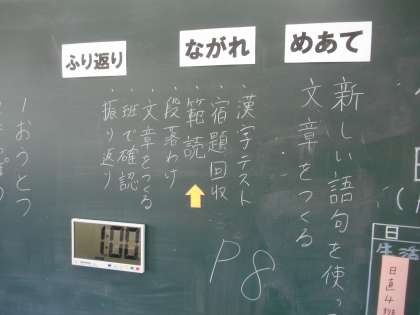 めあて
新しい語句を使っ
文章をつくる
ながれ
・漢字テスト
・宿題回収
・範読
・段落わけ
・文章をつくる
・班で確認
・振り返り
P8
ふり返り
1:00
日
生活
日直4班